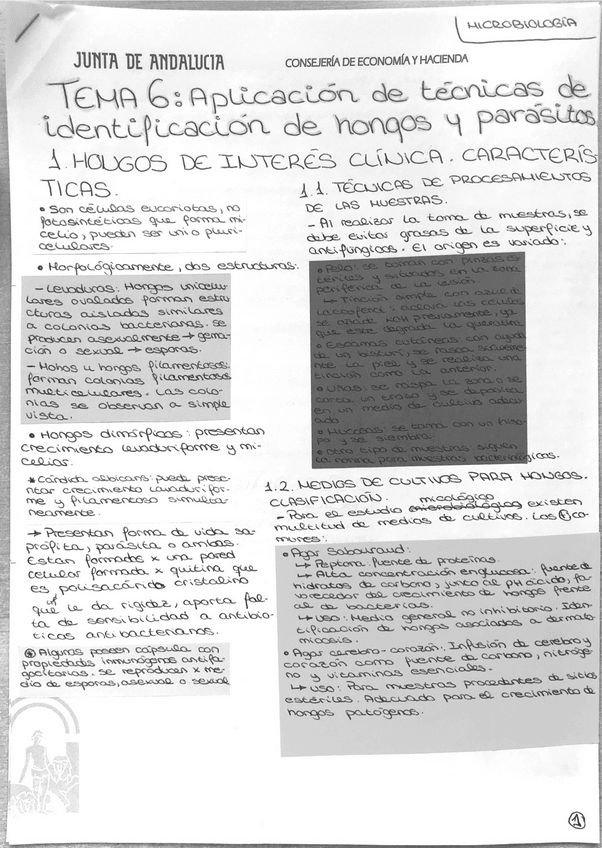 MICROBIOLOGÍA
JUNTA DE ANDALUCIA
CONSEJERÍA DE ECONOMÍA Y HACIENDA
TEMA 6: Aplicación de técnicas de
identificación de hongos y parásitos
1. HONGOS DE INTERÉS CLÍNICA. CARACTERÍS
TICAS.
• Son células eucariotas, no
fotosintéticas que forma mi-
celio, pueden ser uni o pluri-
celulares.
• Morfológicamente, dos estructuras:
- Levaduras: Hongos unicelu-
lares ovalados forman estru-
cturas aisladas similares
a colonias bacterianas. se
producen asexualmente → gema-
ción o sexual → esporas.
- Mohos u hongos filamentosos:
forman colonias filamentosas
multicelulares. Las colo-
nias se observan a simple
vista.
• Hongos dimórficos: presentan
crecimiento levaduriforme y mi-
celiar.
* Cándida albicans: puede prese-
ntar crecimiento levadurifor-
me y filamentoso simulta-
neamente.
→ Presentan forma de vida sa-
prófita, parásita o ambas.
Están formados x una pared
celular formada x quitina que
es polisacárido cristalino
que le da rigidez, aporta fal-
ta de sensibilidad a antibió-
ticos antibacterianos.
Algunos poseen cápsula con
propiedades inmunógenas antifa-
gocitarias. se reproducen x me-
dio de esporas, asexual o sexual
1.1. TÉCNICAS DE PROCESAMIENTOS
DE LAS MUESTRAS.
- Al realizar la toma de muestras, se
debe evitar grasas de la superficie y
antifúngicos. El origen es variado:
• Pelo: se toman con pinzas es-
tériles y situados en la zona
periférica de la lesión.
↳ Tinción simple con azul de
lactofenol: aclara las células
se añade KOH previamente, ya
que este degrada la queratina
• Escamas cutáneas con ayuda
de un bisturí, se raspa suaveme-
nte la piel y se realiza una
tinción como la anterior.
• Uñas: se raspa la zona o se
corta un trozo y se deposita
en un medio de cultivo adecu-
ado
• Mucosas: se toma con un hiso-
po y se siembra.
• Otro tipo de muestras: siguen
la norma para muestras bacteriológicas.
1.2. MEDIOS DE CULTIVOS PARA HONGOS.
CLASIFICACIÓN.
micológico
- Para el estudio microbiológico existen
multitud de medios de cultivos. Los co-
munes:
• Agar Sabouraud:
↳ Peptona: fuente de proteínas.
↳ Alta concentración englucosa: fuente de
hidratos de carbono, junto al pH ácido, fa-
vorecedor del crecimiento de hongos frente
al de bacterias.
↳ uso: Medio general no inhibitorio. Iden-
tificación de hongos asociados a dermato-
micosis.
• Agar cerebro-corazón: Infusión de cerebro y
corazón como fuente de carbono, nitróge-
no y vitaminas esenciales.
↳ uso: Para muestras procedentes de sitios
estériles. Adecuado para el crecimiento de
hongos patógenos.
1